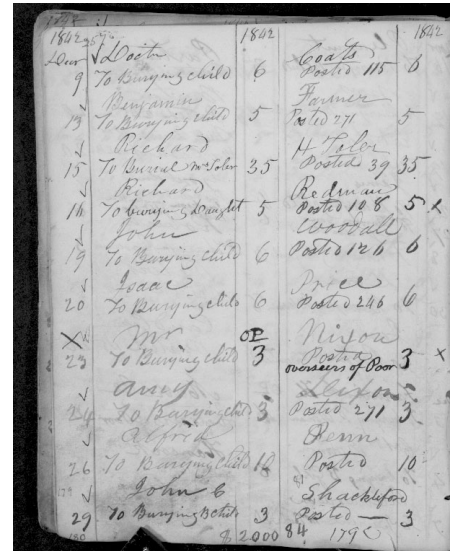 1842 1842 1842
Doctr Coats
9 To Burying child 6 Posted 115 6
Benjamin Farmer
13 To Burying child 5 Posted 271 5
Richard H Toler
15 To Burial Mr Toler 35 Posted 39 35
Richard Redman
16 To burying Daught 5 Posted 108 5 x
John Woodall
19 To Burying child 6 Posted 126 6
Isaac Price
20 To Burying child 6 Posted 246 6
X Mr OP Nixon
23 To Burying child 3 Posted 3 x
overseers of Poor
Amy Dixon
24 To Burying child 3 Posted 271 3
Alfred Penn
26 To Burying Child 10 Posted 10
John C Shackleford
29 To Burying B child 3 Posted — 3
84